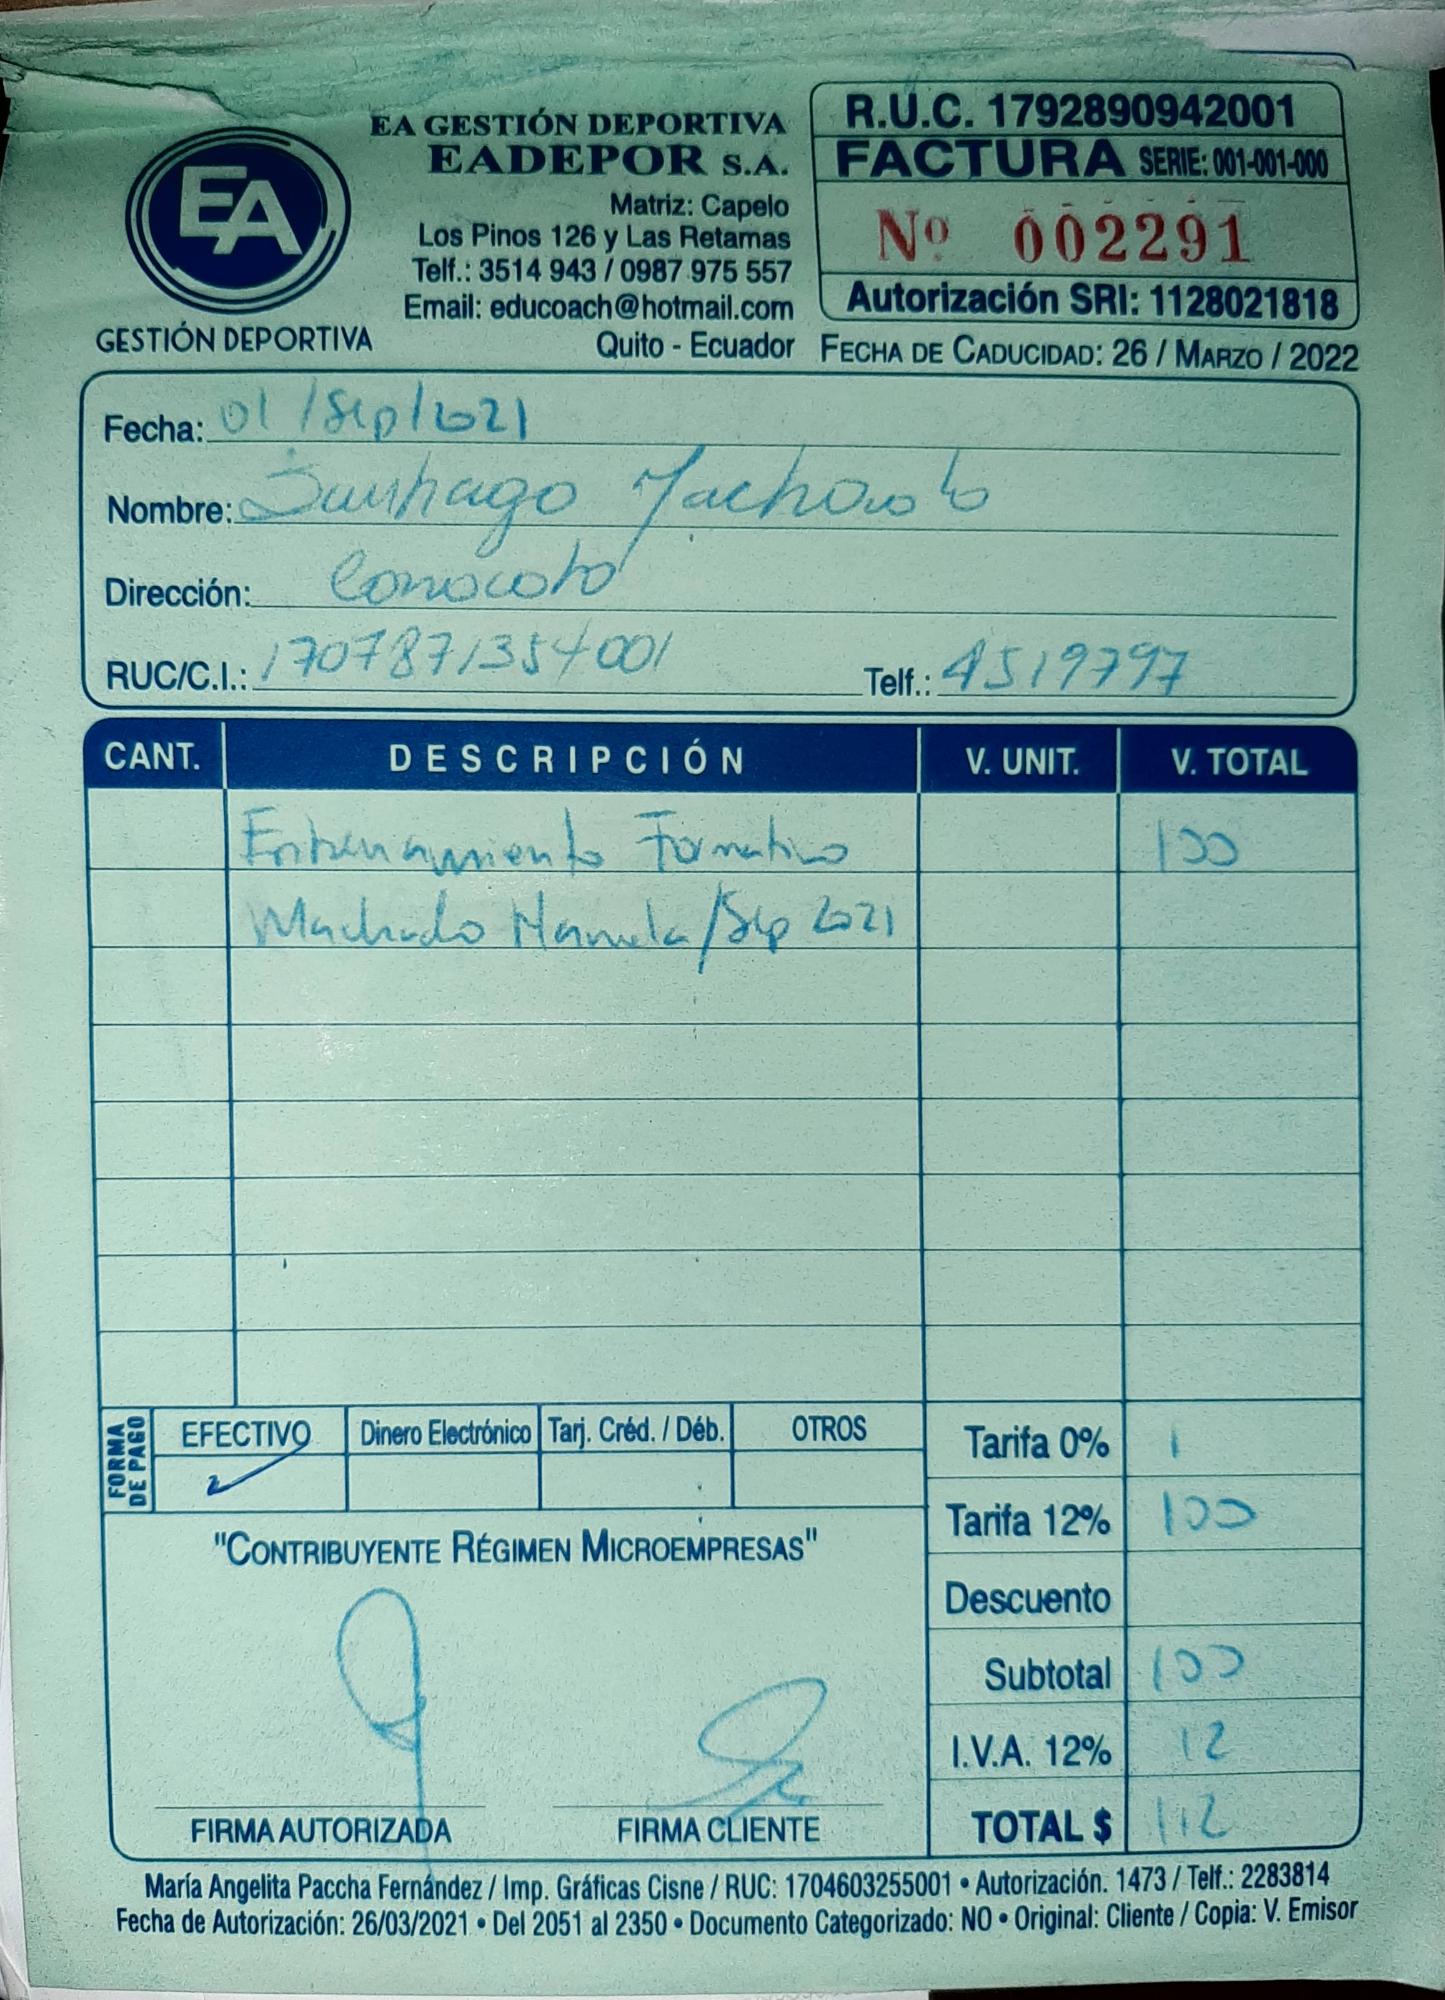 EA
GESTIÓN DEPORTIVA
EA GESTIÓN DEPORTIVA
EADEPOR S.A.
Matriz: Capelo
Los Pinos 126 y Las Retamas
Telf.: 3514 943 / 0987 975 557
Email: educoach@hotmail.com
Quito - Ecuador
R.U.C. 1792890942001
FACTURA SERIE: 001-001-000
Nº 002291
Autorización SRI: 1128021818
FECHA DE CADUCIDAD: 26 / MARZO / 2022
Fecha: 01/Sep/2021
Nombre: Santiago
Dirección: Conocoto
RUC/C.I.: 1707871354001 Telf.: 4519797
CANT. DESCRIPCIÓN V. UNIT. V. TOTAL
Entrenamiento Formativo 100
Machado Manuela/Sep 2021
FORMA DE PAGO
EFECTIVO Dinero Electrónico Tarj. Créd. / Déb. OTROS
Tarifa 0%
Tarifa 12% 100
"CONTRIBUYENTE RÉGIMEN MICROEMPRESAS"
Descuento
Subtotal 100
I.V.A. 12% 12
TOTAL $ 112
FIRMA AUTORIZADA FIRMA CLIENTE
María Angelita Paccha Fernández / Imp. Gráficas Cisne / RUC: 1704603255001 • Autorización. 1473 / Telf.: 2283814
Fecha de Autorización: 26/03/2021 • Del 2051 al 2350 • Documento Categorizado: NO • Original: Cliente / Copia: V. Emisor